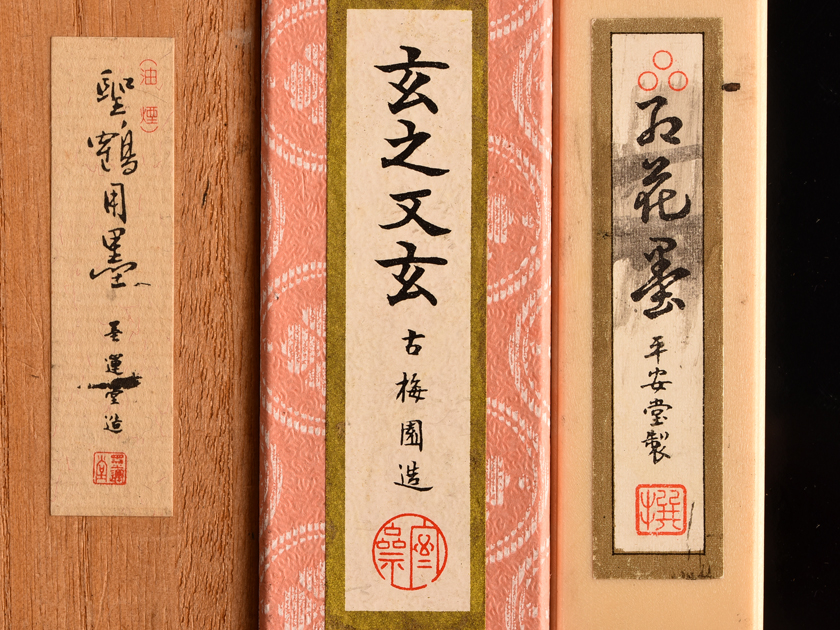 (油煙)
聖鶴用墨
墨運堂造
玄之又玄
古梅園造
紅花墨
平安堂製
撰